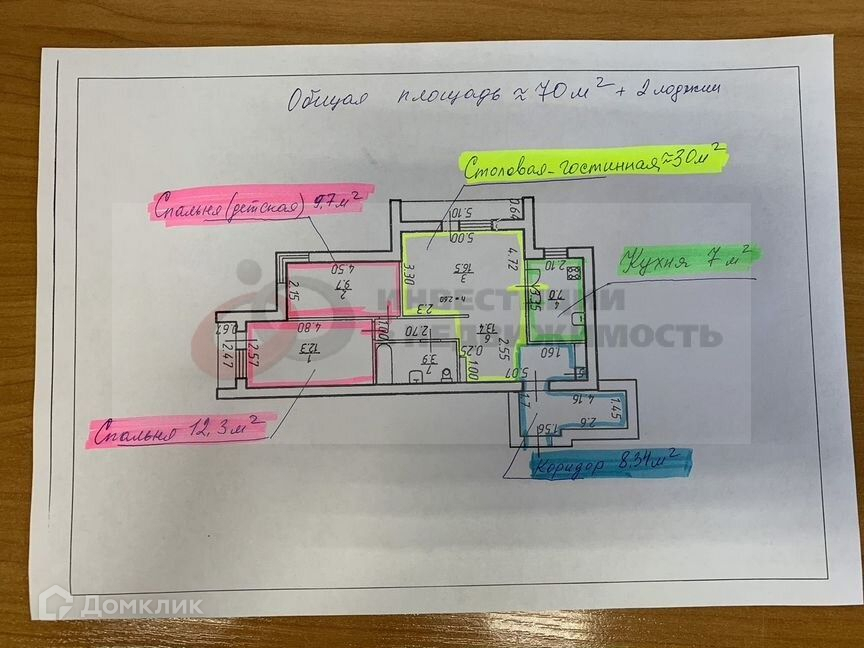 Общая площадь ≈ 70 м² + 2 лоджии
Столовая-гостинная ≈ 30 м²
Спальня (детская) 9,7 м²
Кухня 7 м²
Спальня 12,3 м²
Коридор 8,34 м²
5.10
0.64
5.00
4.72
3.30
3
16.5
h = 2.60
2.3
2.10
4
7.0
3.35
4.50
2
9.7
2.15
0.67
2.47
2.57
4.80
1
12.3
1.00
2.70
7
3.9
0.25
1.00
6
13.4
2.55
5.07
1.60
1.7
4.16
1.45
2.6
1.56
ИНВЕСТИЦИИ
В НЕДВИЖИМОСТЬ
Домклик